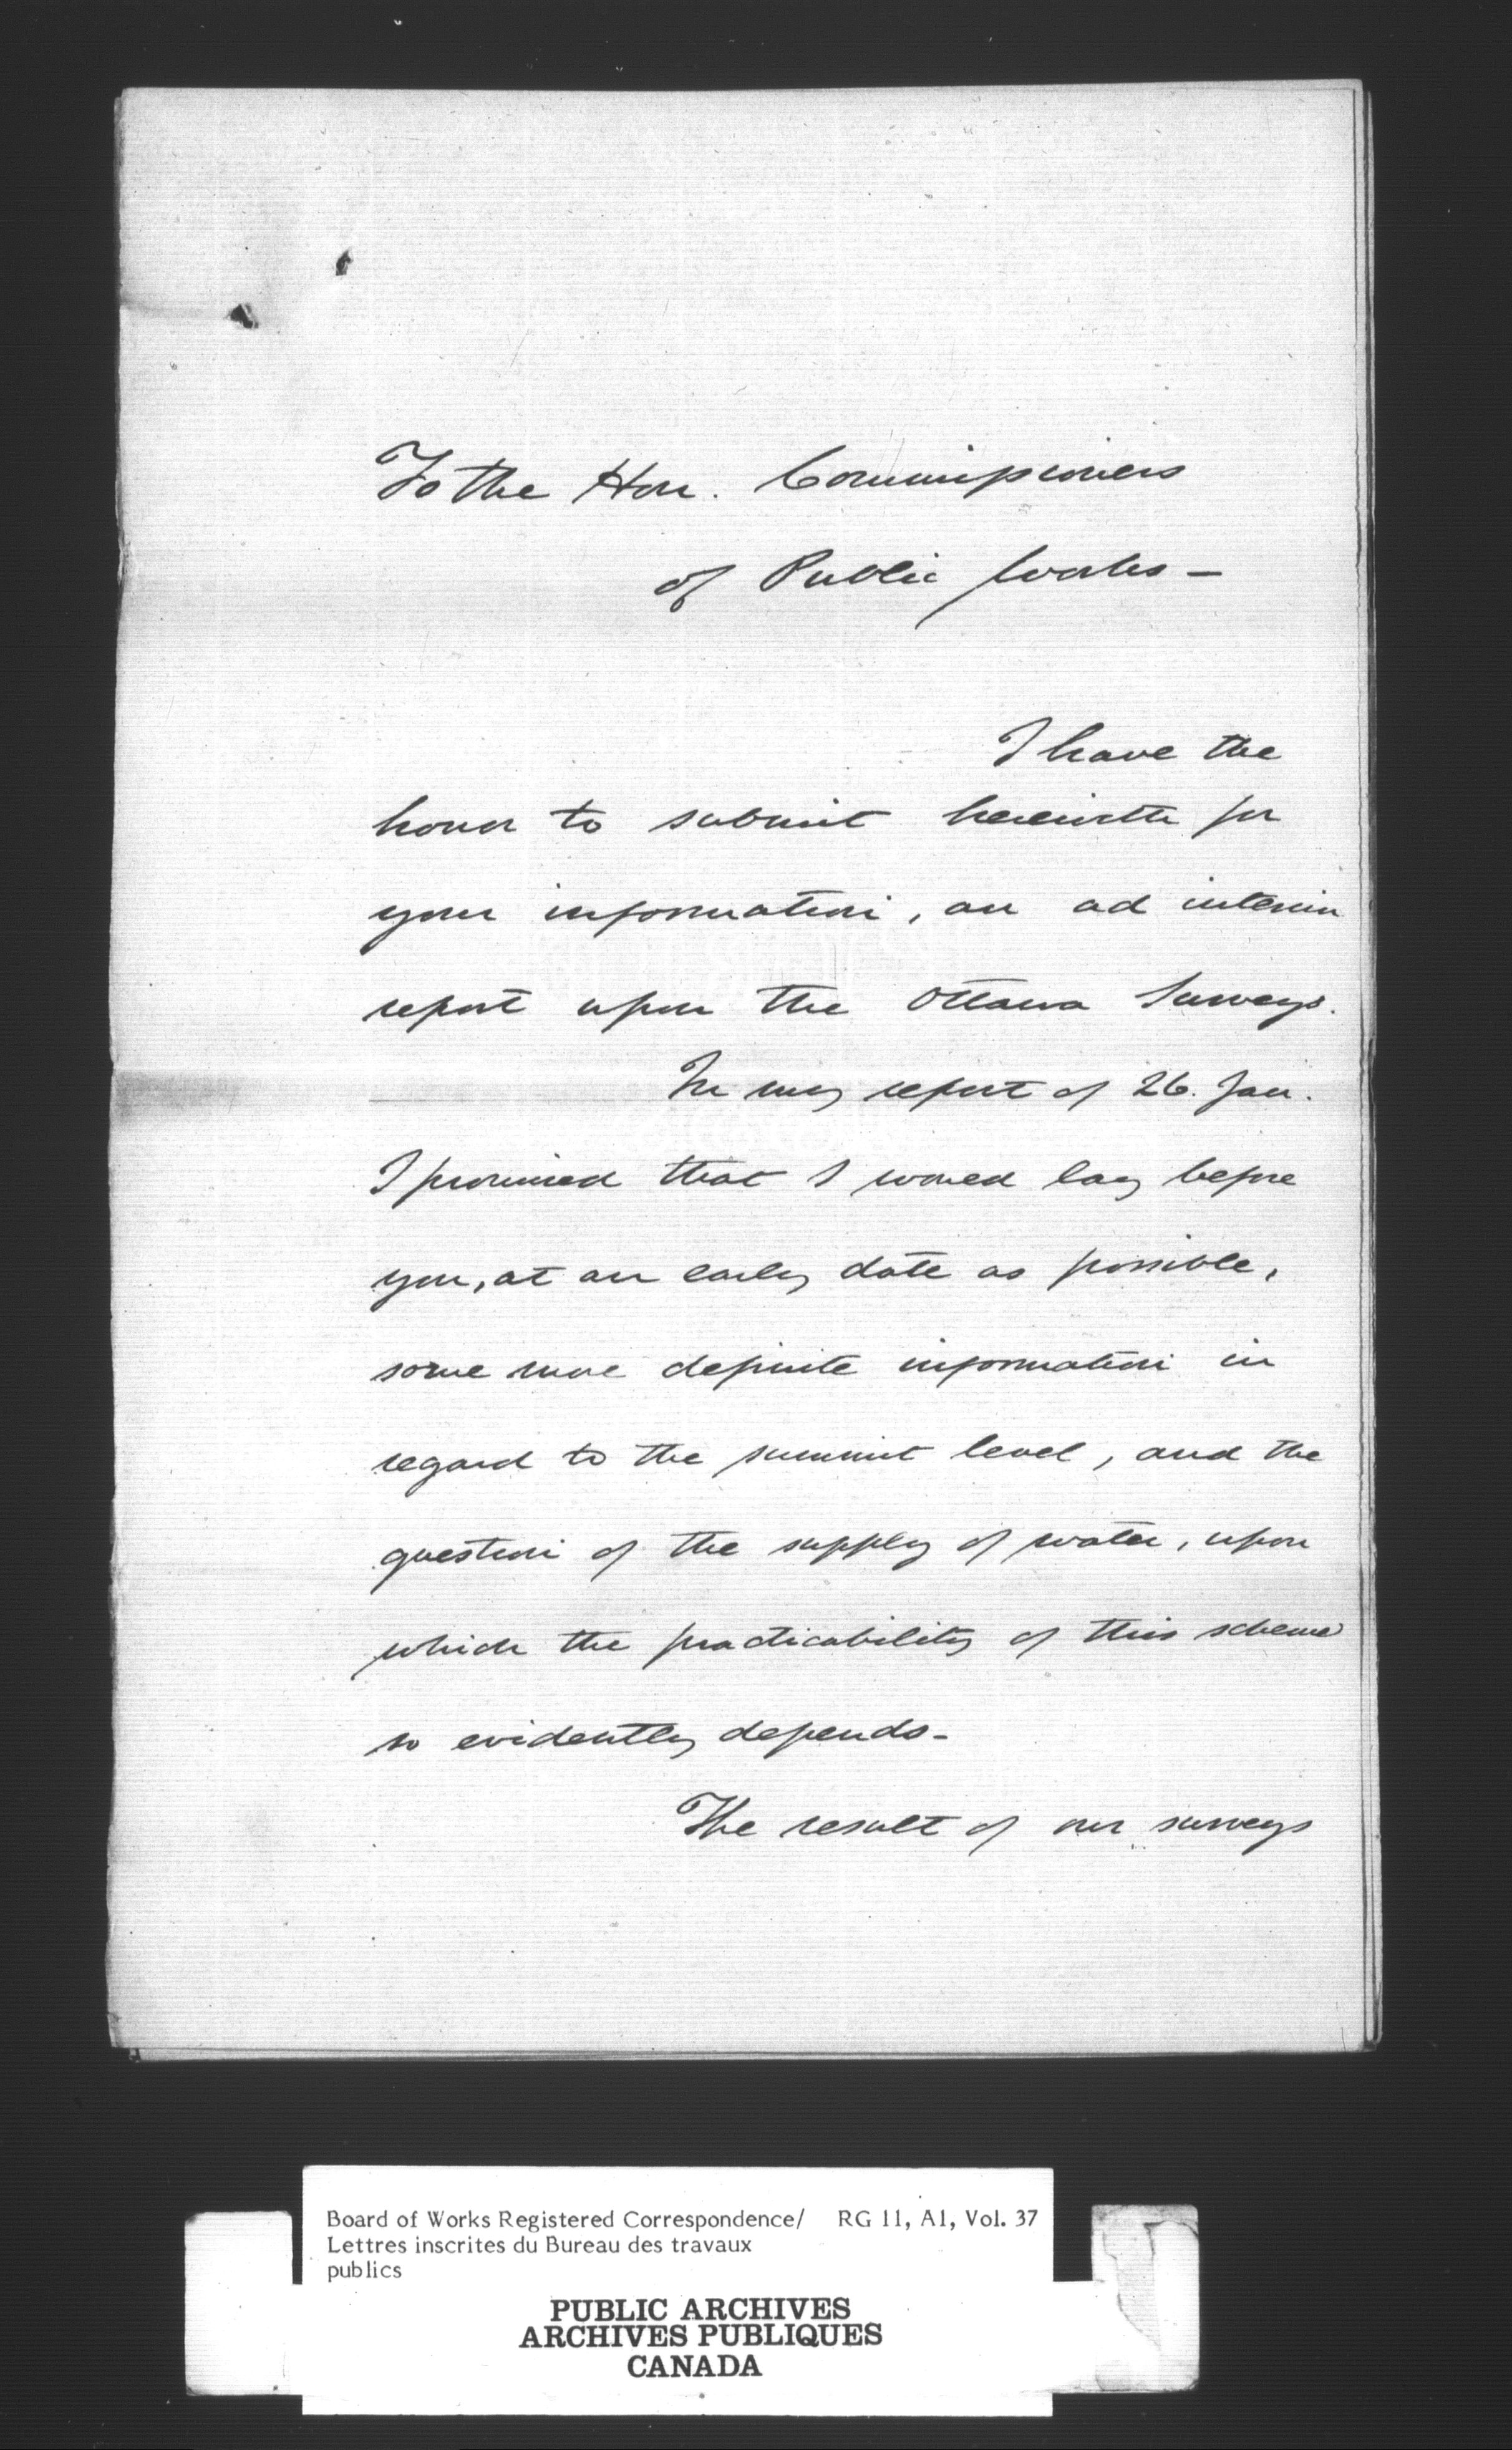 To the Hon. Commissioners
of Public Works —
I have the
honor to submit herewith for
your information, an ad interim
report upon the Ottawa Surveys.
In my report of 26. Jan.
I promised that I would lay before
you, at an early date as possible,
some more definite information in
regard to the summit level, and the
question of the supply of water, upon
which the practicability of this scheme
so evidently depends —
The result of our surveys
Board of Works Registered Correspondence/ RG 11, A1, Vol. 37
Lettres inscrites du Bureau des travaux
publics
PUBLIC ARCHIVES
ARCHIVES PUBLIQUES
CANADA